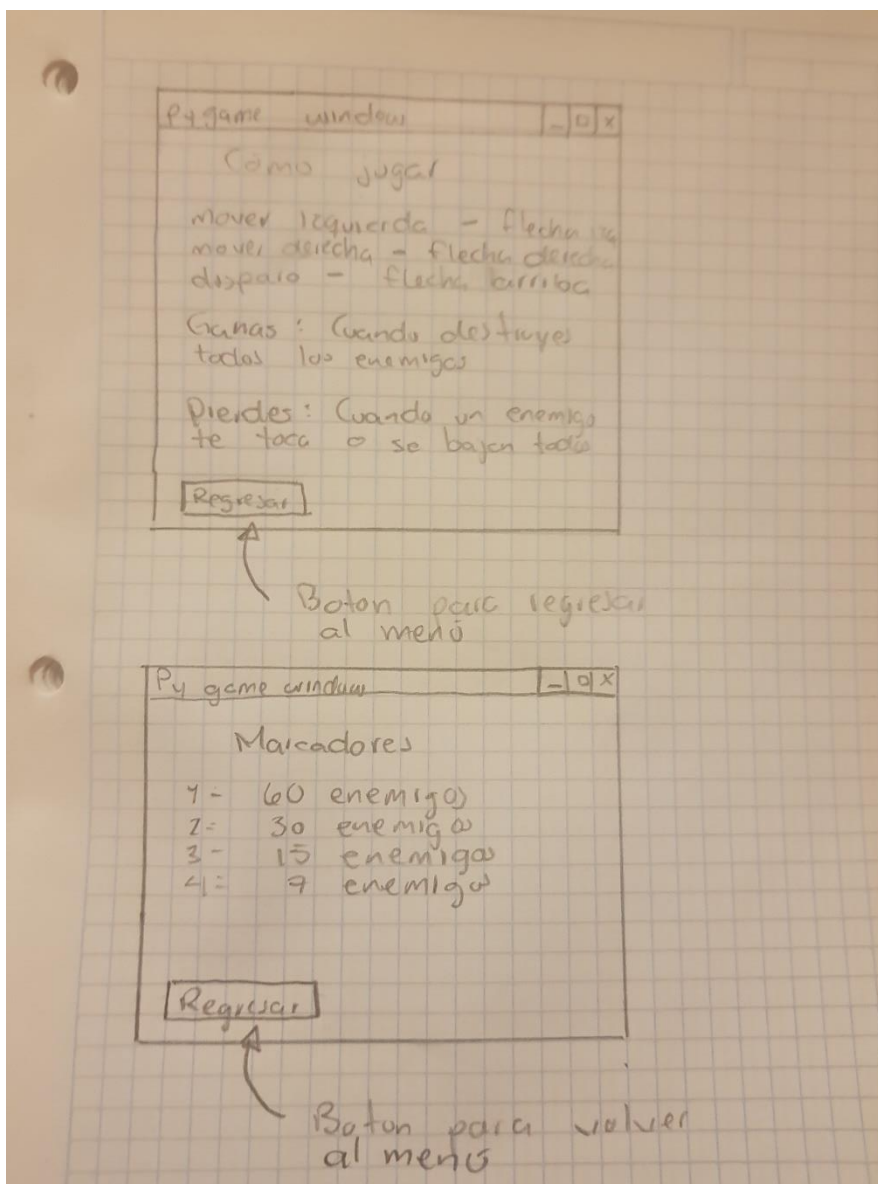 Pygame window - □ x
Como jugar
mover izquierda - flecha
mover derecha - flecha derecha
disparo - flecha arriba
Ganas: Cuando destruyes
todos los enemigos
Pierdes: Cuando un enemigo
te toca o se bajan todos
Regresar
Boton para regresar
al menú
Py game window - □ x
Marcadores
1 - 60 enemigos
2 - 30 enemigos
3 - 15 enemigos
4 - 9 enemigos
Regresar
Boton para volver
al menú